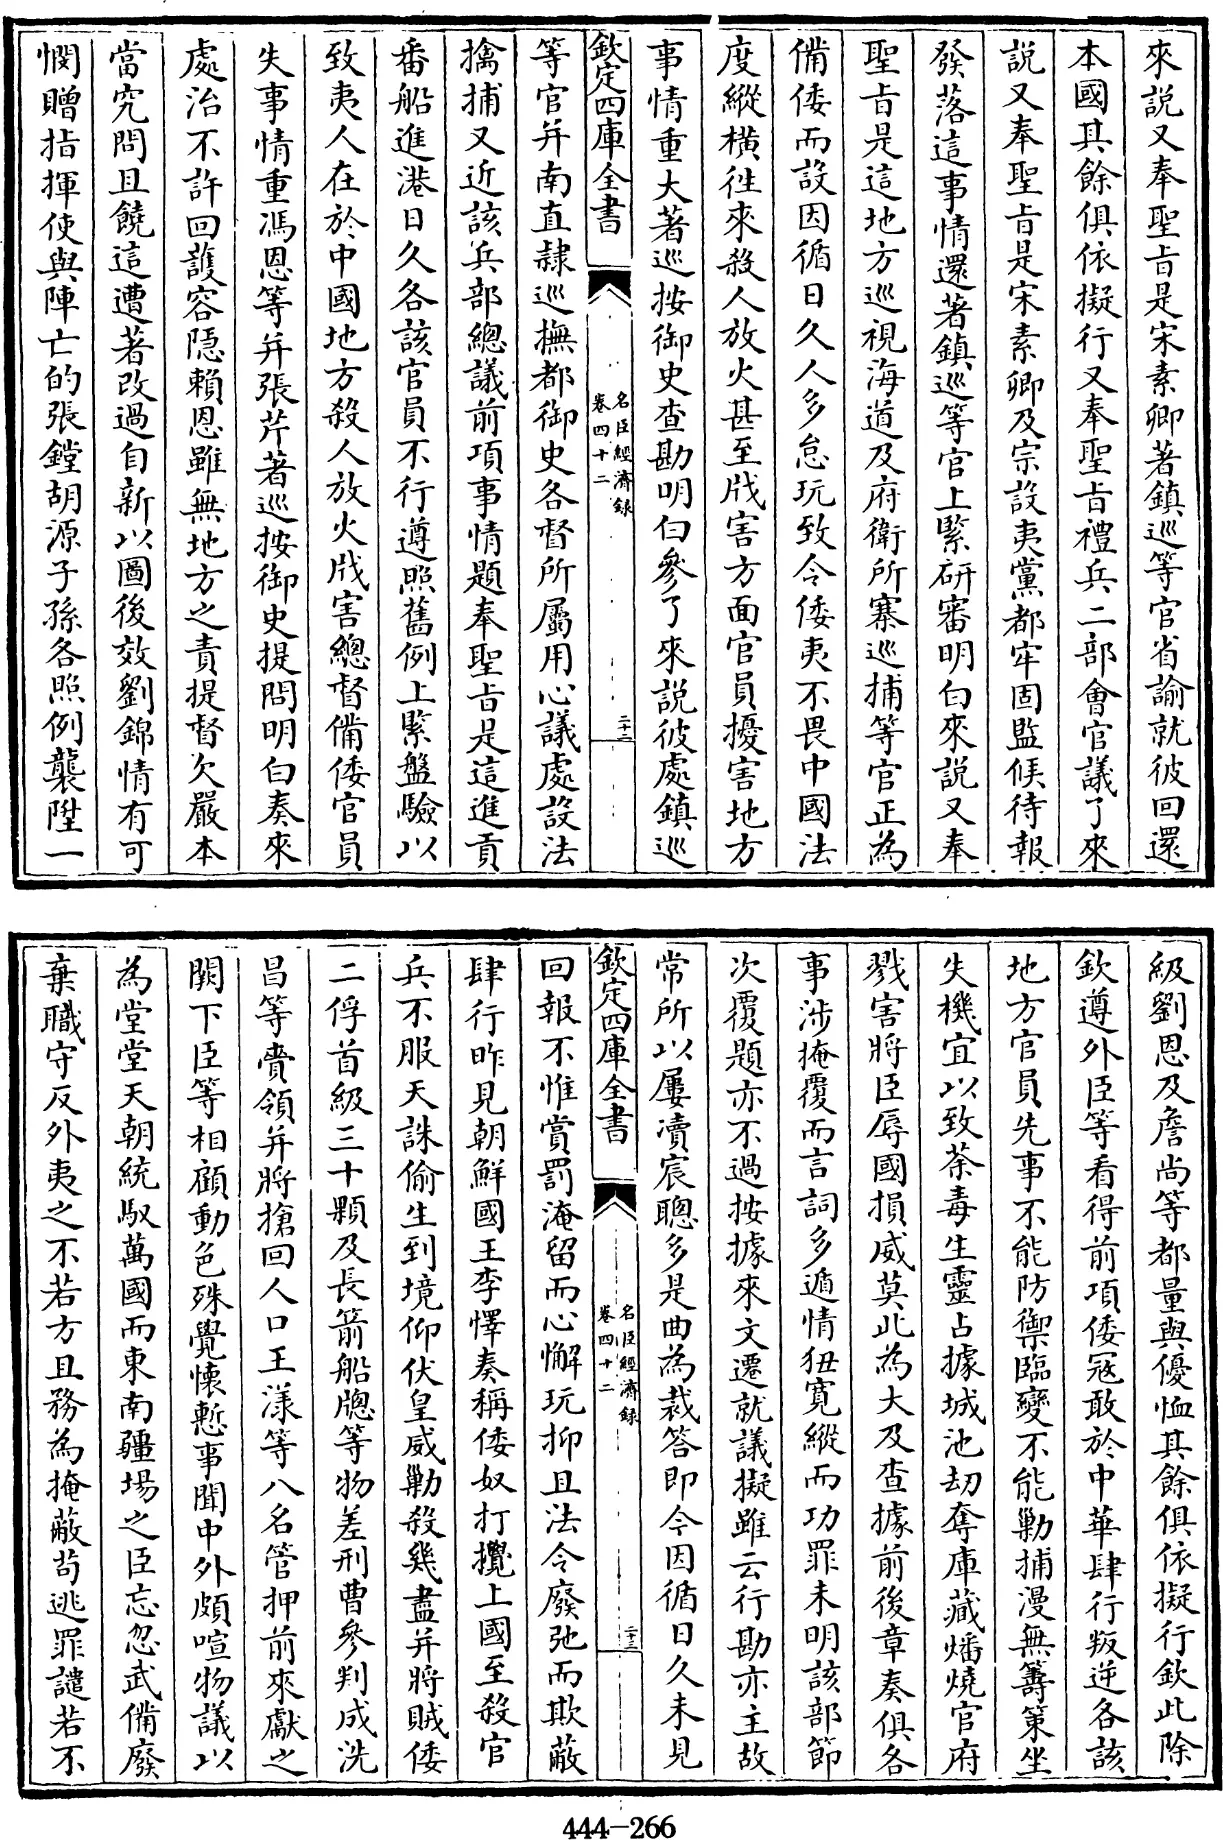 來説又奉聖旨是宋素卿著鎮巡等官省諭就彼回還
本國其餘俱依擬行又奉聖旨禮兵二部會官議了來
説又奉聖旨是宋素卿及宗設夷黨都牢固監候待報
發落這事情還著鎮巡等官上緊研審明白來説又奉
聖旨是這地方巡視海道及府衛所寨巡捕等官正為
備倭而設因循日久人多怠玩致令倭夷不畏中國法
度縱橫徃來殺人放火甚至戕害方面官員擾害地方
事情重大著巡按御史查勘明白參了來説彼處鎮巡
欽定四庫全書
名臣經濟録
卷四十二
二十二
等官并南直隸巡撫都御史各督所屬用心議處設法
擒捕又近該兵部總議前項事情題奉聖旨是這進貢
番船進港日久各該官員不行遵照舊例上緊盤驗以
致夷人在於中國地方殺人放火戕害總督備倭官員
失事情重馮恩等并張芹著巡按御史提問明白奏來
處治不許回護容隱賴恩雖無地方之責提督欠嚴本
當究問且饒這遭著改過自新以圖後效劉錦情有可
憫贈指揮使與陣亡的張鏜胡源子孫各照例襲陞一
級劉恩及詹尚等都量與優恤其餘俱依擬行欽此除
欽遵外臣等看得前項倭寇敢於中華肆行叛逆各該
地方官員先事不能防禦臨變不能勦捕漫無籌策坐
失機宜以致荼毒生靈占據城池刼奪庫藏燔燒官府
戮害將臣辱國損威莫此為大及查據前後章奏俱各
事涉掩覆而言詞多遁情狃寬縱而功罪未明該部節
次覆題亦不過按據來文遷就議擬雖云行勘亦主故
常所以屢瀆宸聰多是曲為裁答即今因循日久未見
欽定四庫全書
名臣經濟録
卷四十二
二十三
回報不惟賞罰淹留而心懈玩抑且法令廢弛而欺蔽
肆行昨見朝鮮國王李懌奏稱倭奴打攪上國至殺官
兵不服天誅偷生到境仰伏皇威勦殺幾盡并將賊倭
二俘首級三十顆及長箭船牕等物差刑曹參判成洗
昌等賫領并將搶回人口王漾等八名管押前來獻之
闕下臣等相顧動色殊覺懷慙事聞中外頗喧物議以
為堂堂天朝統馭萬國而東南疆場之臣忘忽武備廢
棄職守反外夷之不若方且務為掩蔽苟逃罪譴若不
444-266